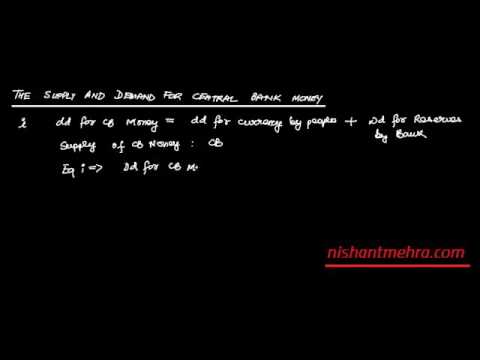 THE SUPPLY AND DEMAND FOR CENTRAL BANK MONEY
i dd for CB Money = dd for currency by people + Dd for Reserves by Bank
Supply of CB Money : CB
Eq i => Dd for CB M.
nishantmehra.com